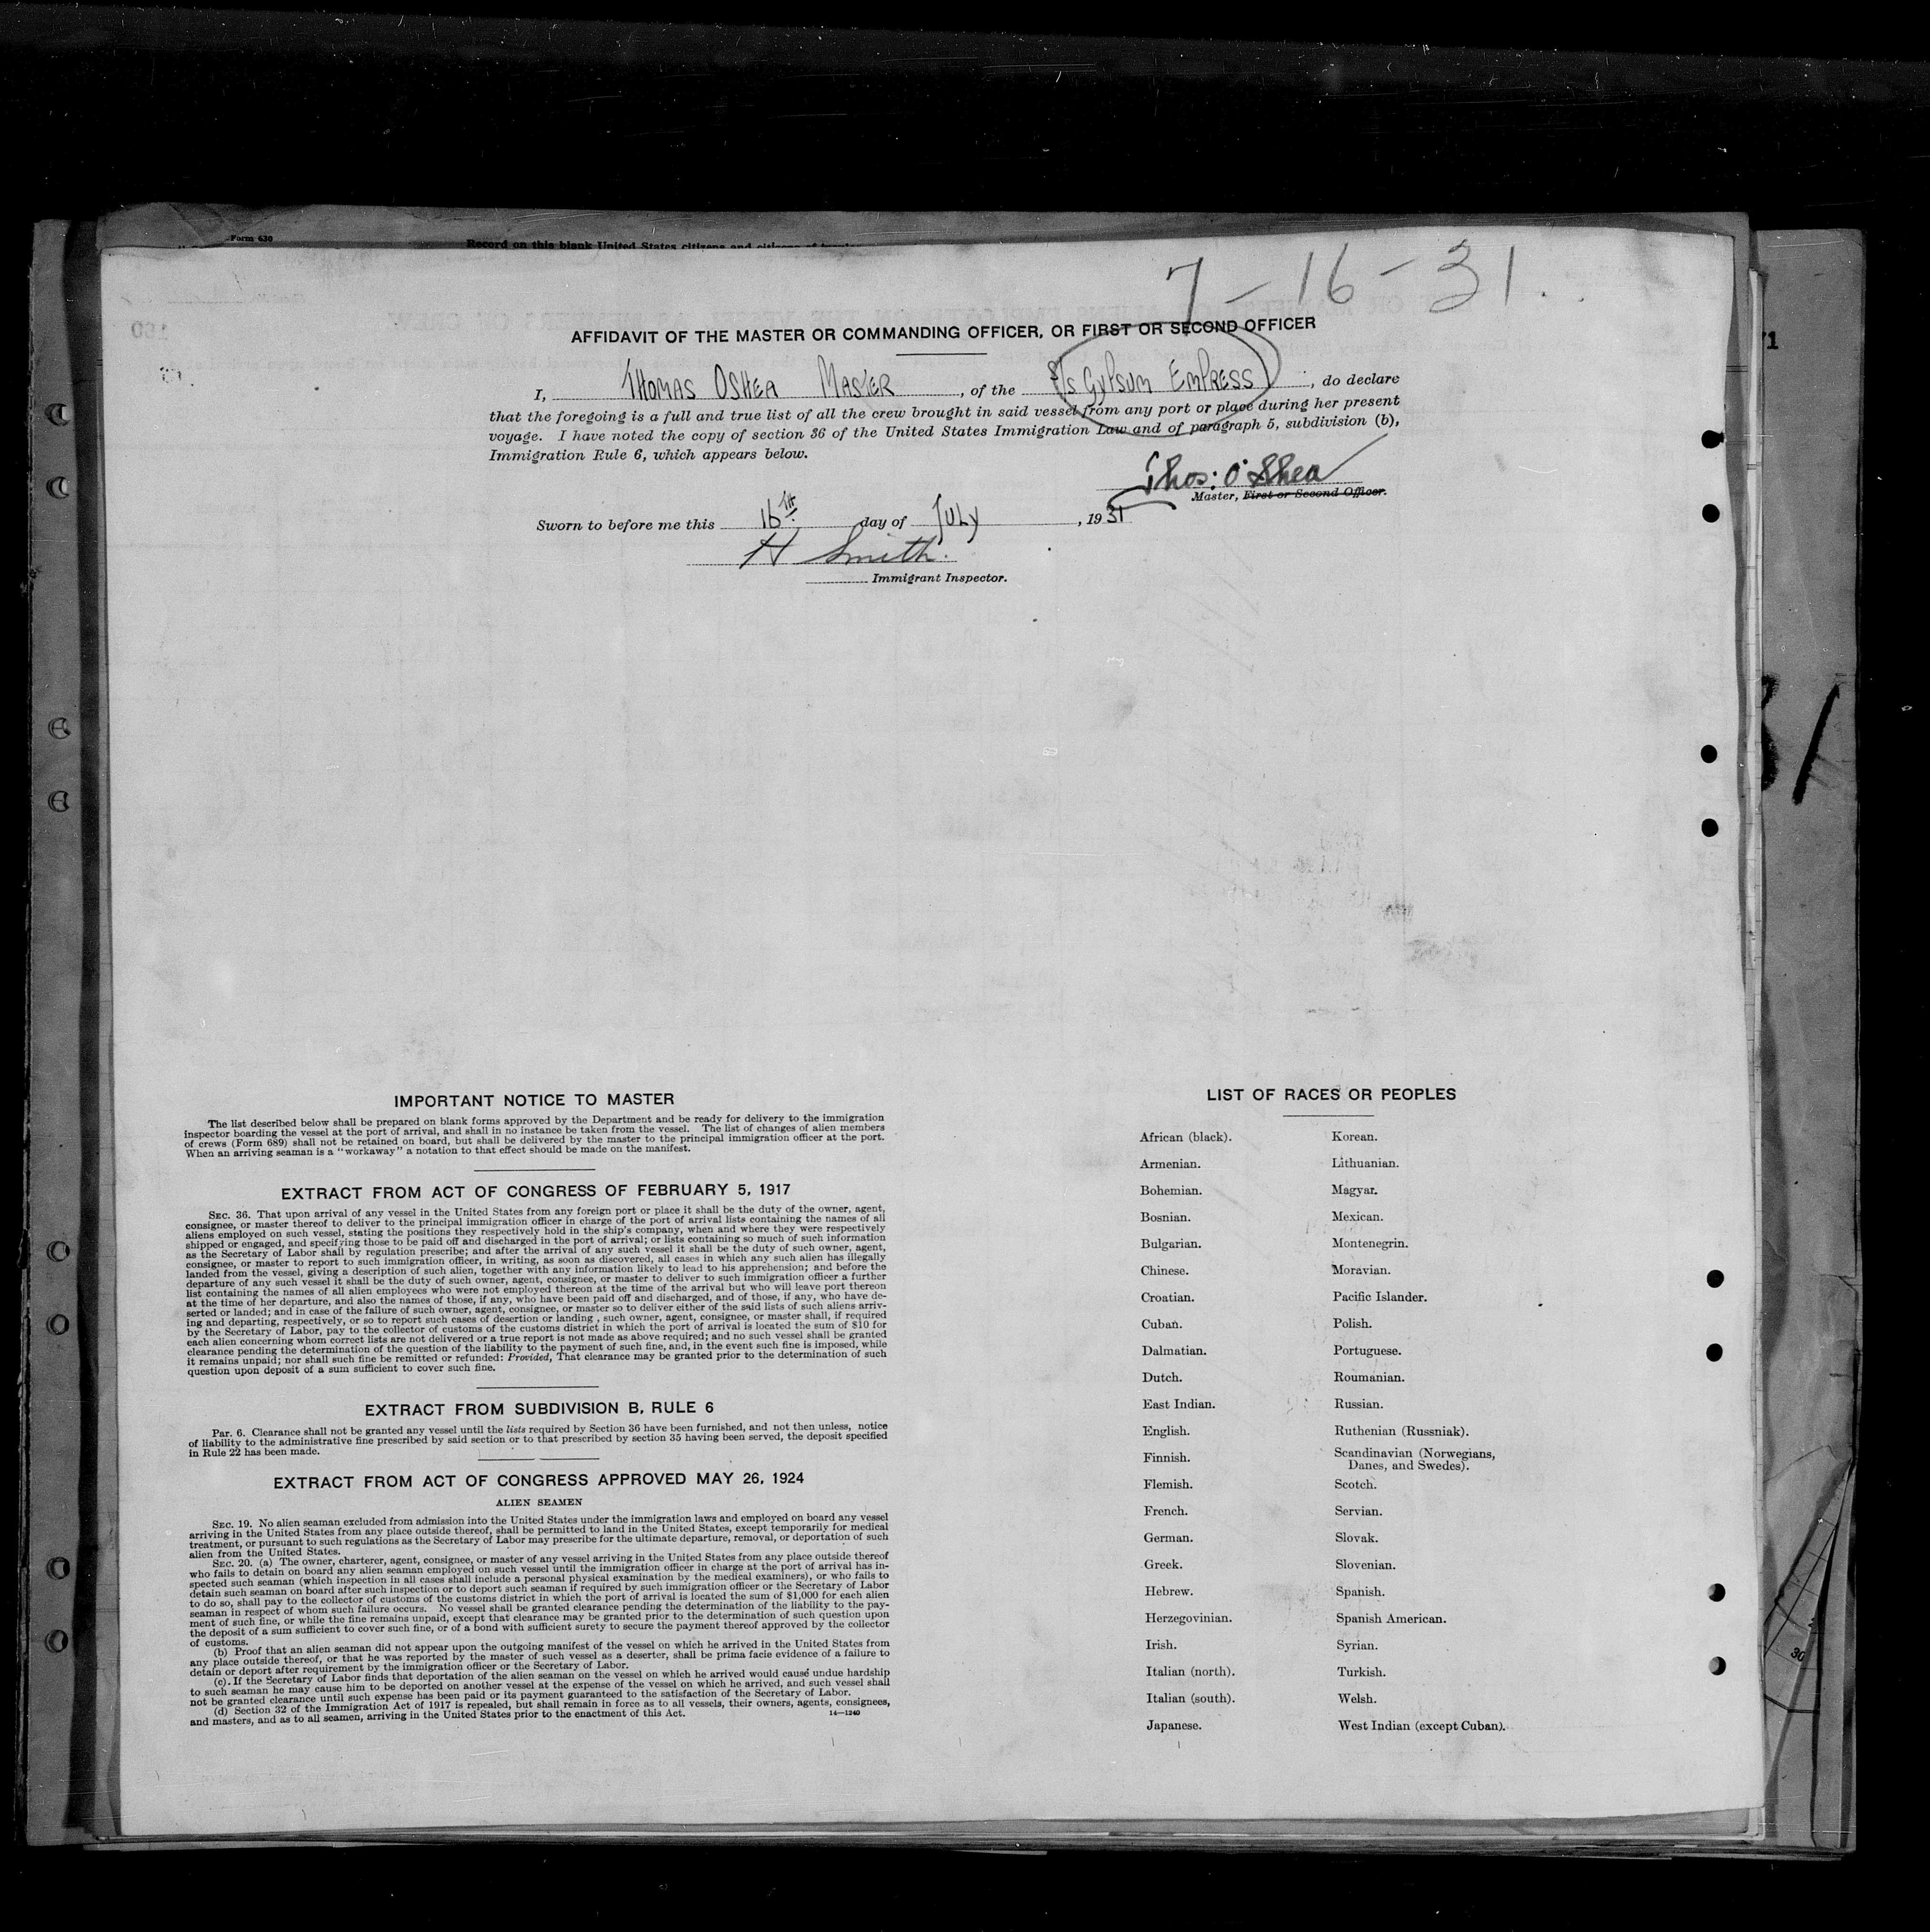 Form 630
Record on this blank United States citizens and citizens of
7-16-31.
AFFIDAVIT OF THE MASTER OR COMMANDING OFFICER, OR FIRST OR SECOND OFFICER
I, THOMAS OSHEA MASTER, of the S/S GYPSUM EMPRESS, do declare
that the foregoing is a full and true list of all the crew brought in said vessel from any port or place during her present
voyage. I have noted the copy of section 36 of the United States Immigration Law and of paragraph 5, subdivision (b),
Immigration Rule 6, which appears below.
Thos: O'Shea
Master, First or Second Officer.
Sworn to before me this 16TH day of JULY, 1931
H Smith.
Immigrant Inspector.
IMPORTANT NOTICE TO MASTER
The list described below shall be prepared on blank forms approved by the Department and be ready for delivery to the immigration
inspector boarding the vessel at the port of arrival, and shall in no instance be taken from the vessel. The list of changes of alien members
of crews (Form 689) shall not be retained on board, but shall be delivered by the master to the principal immigration officer at the port.
When an arriving seaman is a "workaway" a notation to that effect should be made on the manifest.
EXTRACT FROM ACT OF CONGRESS OF FEBRUARY 5, 1917
SEC. 36. That upon arrival of any vessel in the United States from any foreign port or place it shall be the duty of the owner, agent,
consignee, or master thereof to deliver to the principal immigration officer in charge of the port of arrival lists containing the names of all
aliens employed on such vessel, stating the positions they respectively hold in the ship's company, when and where they were respectively
shipped or engaged, and specifying those to be paid off and discharged in the port of arrival; or lists containing so much of such information
as the Secretary of Labor shall by regulation prescribe; and after the arrival of any such vessel it shall be the duty of such owner, agent,
consignee, or master to report to such immigration officer, in writing, as soon as discovered, all cases in which any such alien has illegally
landed from the vessel, giving a description of such alien, together with any information likely to lead to his apprehension; and before the
departure of any such vessel it shall be the duty of such owner, agent, consignee, or master to deliver to such immigration officer a further
list containing the names of all alien employees who were not employed thereon at the time of the arrival but who will leave port thereon
at the time of her departure, and also the names of those, if any, who have been paid off and discharged, and of those, if any, who have de-
serted or landed; and in case of the failure of such owner, agent, consignee, or master so to deliver either of the said lists of such aliens arriv-
ing and departing, respectively, or so to report such cases of desertion or landing , such owner, agent, consignee, or master shall, if required
by the Secretary of Labor, pay to the collector of customs of the customs district in which the port of arrival is located the sum of $10 for
each alien concerning whom correct lists are not delivered or a true report is not made as above required; and no such vessel shall be granted
clearance pending the determination of the question of the liability to the payment of such fine, and, in the event such fine is imposed, while
it remains unpaid; nor shall such fine be remitted or refunded: Provided, That clearance may be granted prior to the determination of such
question upon deposit of a sum sufficient to cover such fine.
EXTRACT FROM SUBDIVISION B, RULE 6
Par. 6. Clearance shall not be granted any vessel until the lists required by Section 36 have been furnished, and not then unless, notice
of liability to the administrative fine prescribed by said section or to that prescribed by section 35 having been served, the deposit specified
in Rule 22 has been made.
EXTRACT FROM ACT OF CONGRESS APPROVED MAY 26, 1924
ALIEN SEAMEN
SEC. 19. No alien seaman excluded from admission into the United States under the immigration laws and employed on board any vessel
arriving in the United States from any place outside thereof, shall be permitted to land in the United States, except temporarily for medical
treatment, or pursuant to such regulations as the Secretary of Labor may prescribe for the ultimate departure, removal, or deportation of such
alien from the United States.
SEC. 20. (a) The owner, charterer, agent, consignee, or master of any vessel arriving in the United States from any place outside thereof
who fails to detain on board any alien seaman employed on such vessel until the immigration officer in charge at the port of arrival has in-
spected such seaman (which inspection in all cases shall include a personal physical examination by the medical examiners), or who fails to
detain such seaman on board after such inspection or to deport such seaman if required by such immigration officer or the Secretary of Labor
to do so, shall pay to the collector of customs of the customs district in which the port of arrival is located the sum of $1,000 for each alien
seaman in respect of whom such failure occurs. No vessel shall be granted clearance pending the determination of the liability to the pay-
ment of such fine, or while the fine remains unpaid, except that clearance may be granted prior to the determination of such question upon
the deposit of a sum sufficient to cover such fine, or of a bond with sufficient surety to secure the payment thereof approved by the collector
of customs.
(b) Proof that an alien seaman did not appear upon the outgoing manifest of the vessel on which he arrived in the United States from
any place outside thereof, or that he was reported by the master of such vessel as a deserter, shall be prima facie evidence of a failure to
detain or deport after requirement by the immigration officer or the Secretary of Labor.
(c). If the Secretary of Labor finds that deportation of the alien seaman on the vessel on which he arrived would cause undue hardship
to such seaman he may cause him to be deported on another vessel at the expense of the vessel on which he arrived, and such vessel shall
not be granted clearance until such expense has been paid or its payment guaranteed to the satisfaction of the Secretary of Labor.
(d) Section 32 of the Immigration Act of 1917 is repealed, but shall remain in force as to all vessels, their owners, agents, consignees,
and masters, and as to all seamen, arriving in the United States prior to the enactment of this Act.
14—1240
LIST OF RACES OR PEOPLES
African (black).
Armenian.
Bohemian.
Bosnian.
Bulgarian.
Chinese.
Croatian.
Cuban.
Dalmatian.
Dutch.
East Indian.
English.
Finnish.
Flemish.
French.
German.
Greek.
Hebrew.
Herzegovinian.
Irish.
Italian (north).
Italian (south).
Japanese.
Korean.
Lithuanian.
Magyar.
Mexican.
Montenegrin.
Moravian.
Pacific Islander.
Polish.
Portuguese.
Roumanian.
Russian.
Ruthenian (Russniak).
Scandinavian (Norwegians,
Danes, and Swedes).
Scotch.
Servian.
Slovak.
Slovenian.
Spanish.
Spanish American.
Syrian.
Turkish.
Welsh.
West Indian (except Cuban).
71
31
30